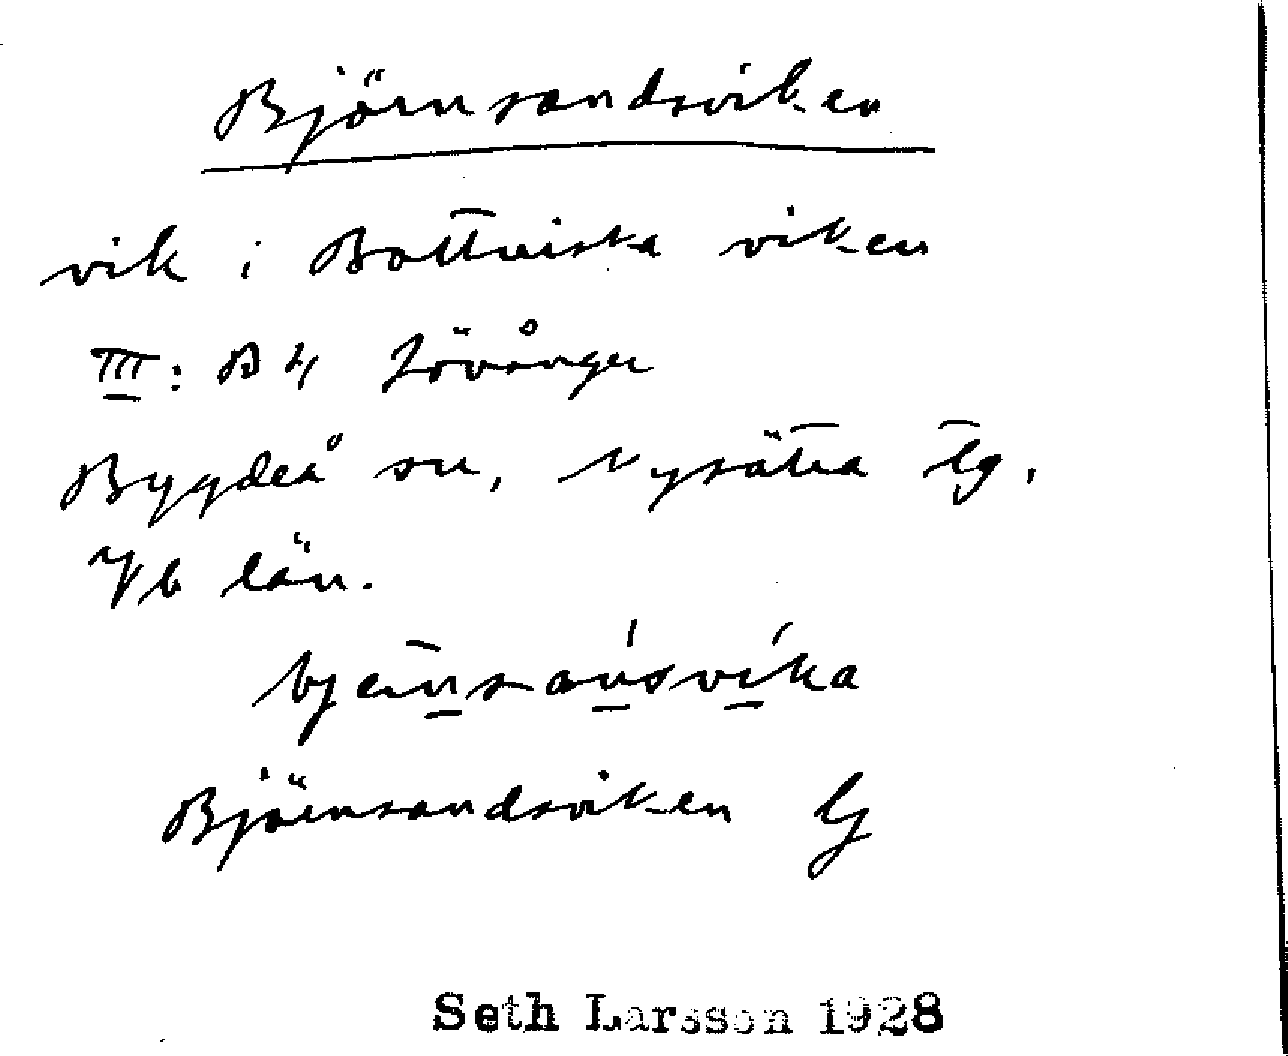 Björnsandsviken
vik i Bottniska viken
III: B 4 Lövånger
Bygdeå sn, Nysätra tg.
Vb län.
Björnsandsviken
Seth Larsson 1928